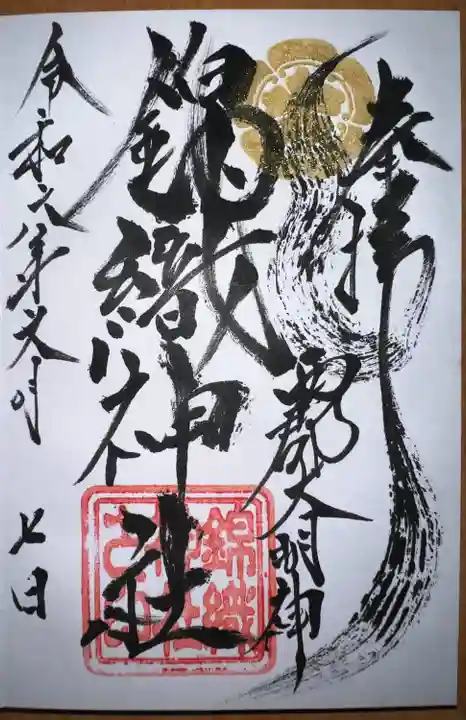 奉拝
大明神
錦織神社
錦織
神社
之印
令和六年文月 七日